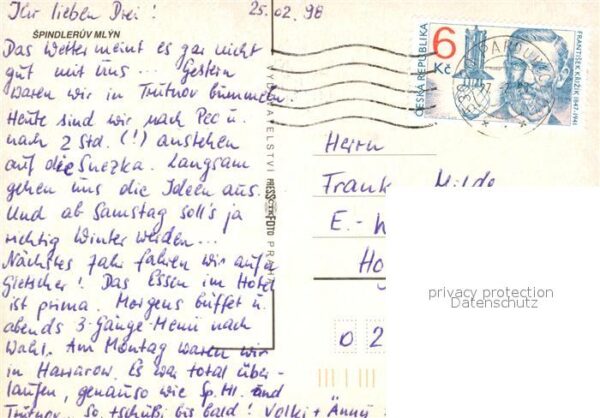 Ihr lieben Drei! 25.02.98
ŠPINDLERŮV MLÝN
Das Wetter meint es gar nicht
gut mit uns ... Gestern
waren wir in Trutnov bummeln.
Heute sind wir nach Pec u.
nach 2 Std. (!) anstehen
auf die Snezka. Langsam
gehen uns die Ideen aus.
Und ab Samstag soll's ja
richtig Winter werden ...
Nächstes Jahr fahren wir auf'n
Gletscher! Das Essen im Hotel
ist prima. Morgens büffet u.
abends 3-Gänge-Menü nach
Wahl. Am Montag waren wir
in Harrarow. Es war total über-
laufen, genauso wie Sp. Ml. und
Trutnov. So, tschüßi bis bald! Volki + Änni
VYDAVATELSTVÍ PRESSFOTO PRAHA
6 Kč
ČESKÁ REPUBLIKA
FRANTIŠEK KŘIŽÍK 1847-1941
Herrn
Frank Hilde
E.-
Ho
0 2
privacy protection
Datenschutz